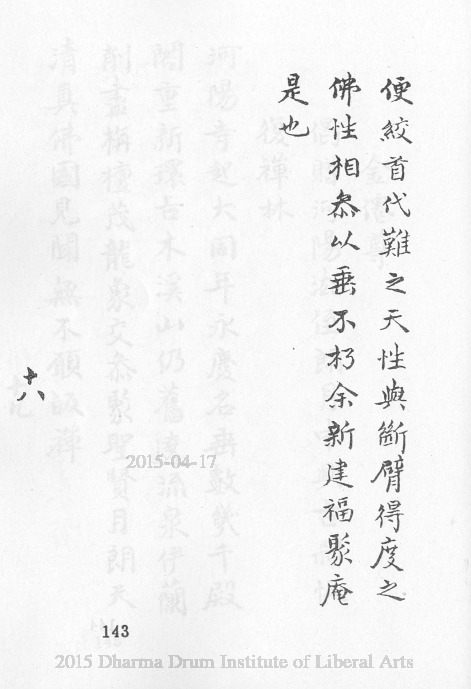 便絞首代難之天性與斷臂得度之
佛性相叅以垂不朽余新建福聚庵
是也
十八
2015-04-17
143
2015 Dharma Drum Institute of Liberal Arts